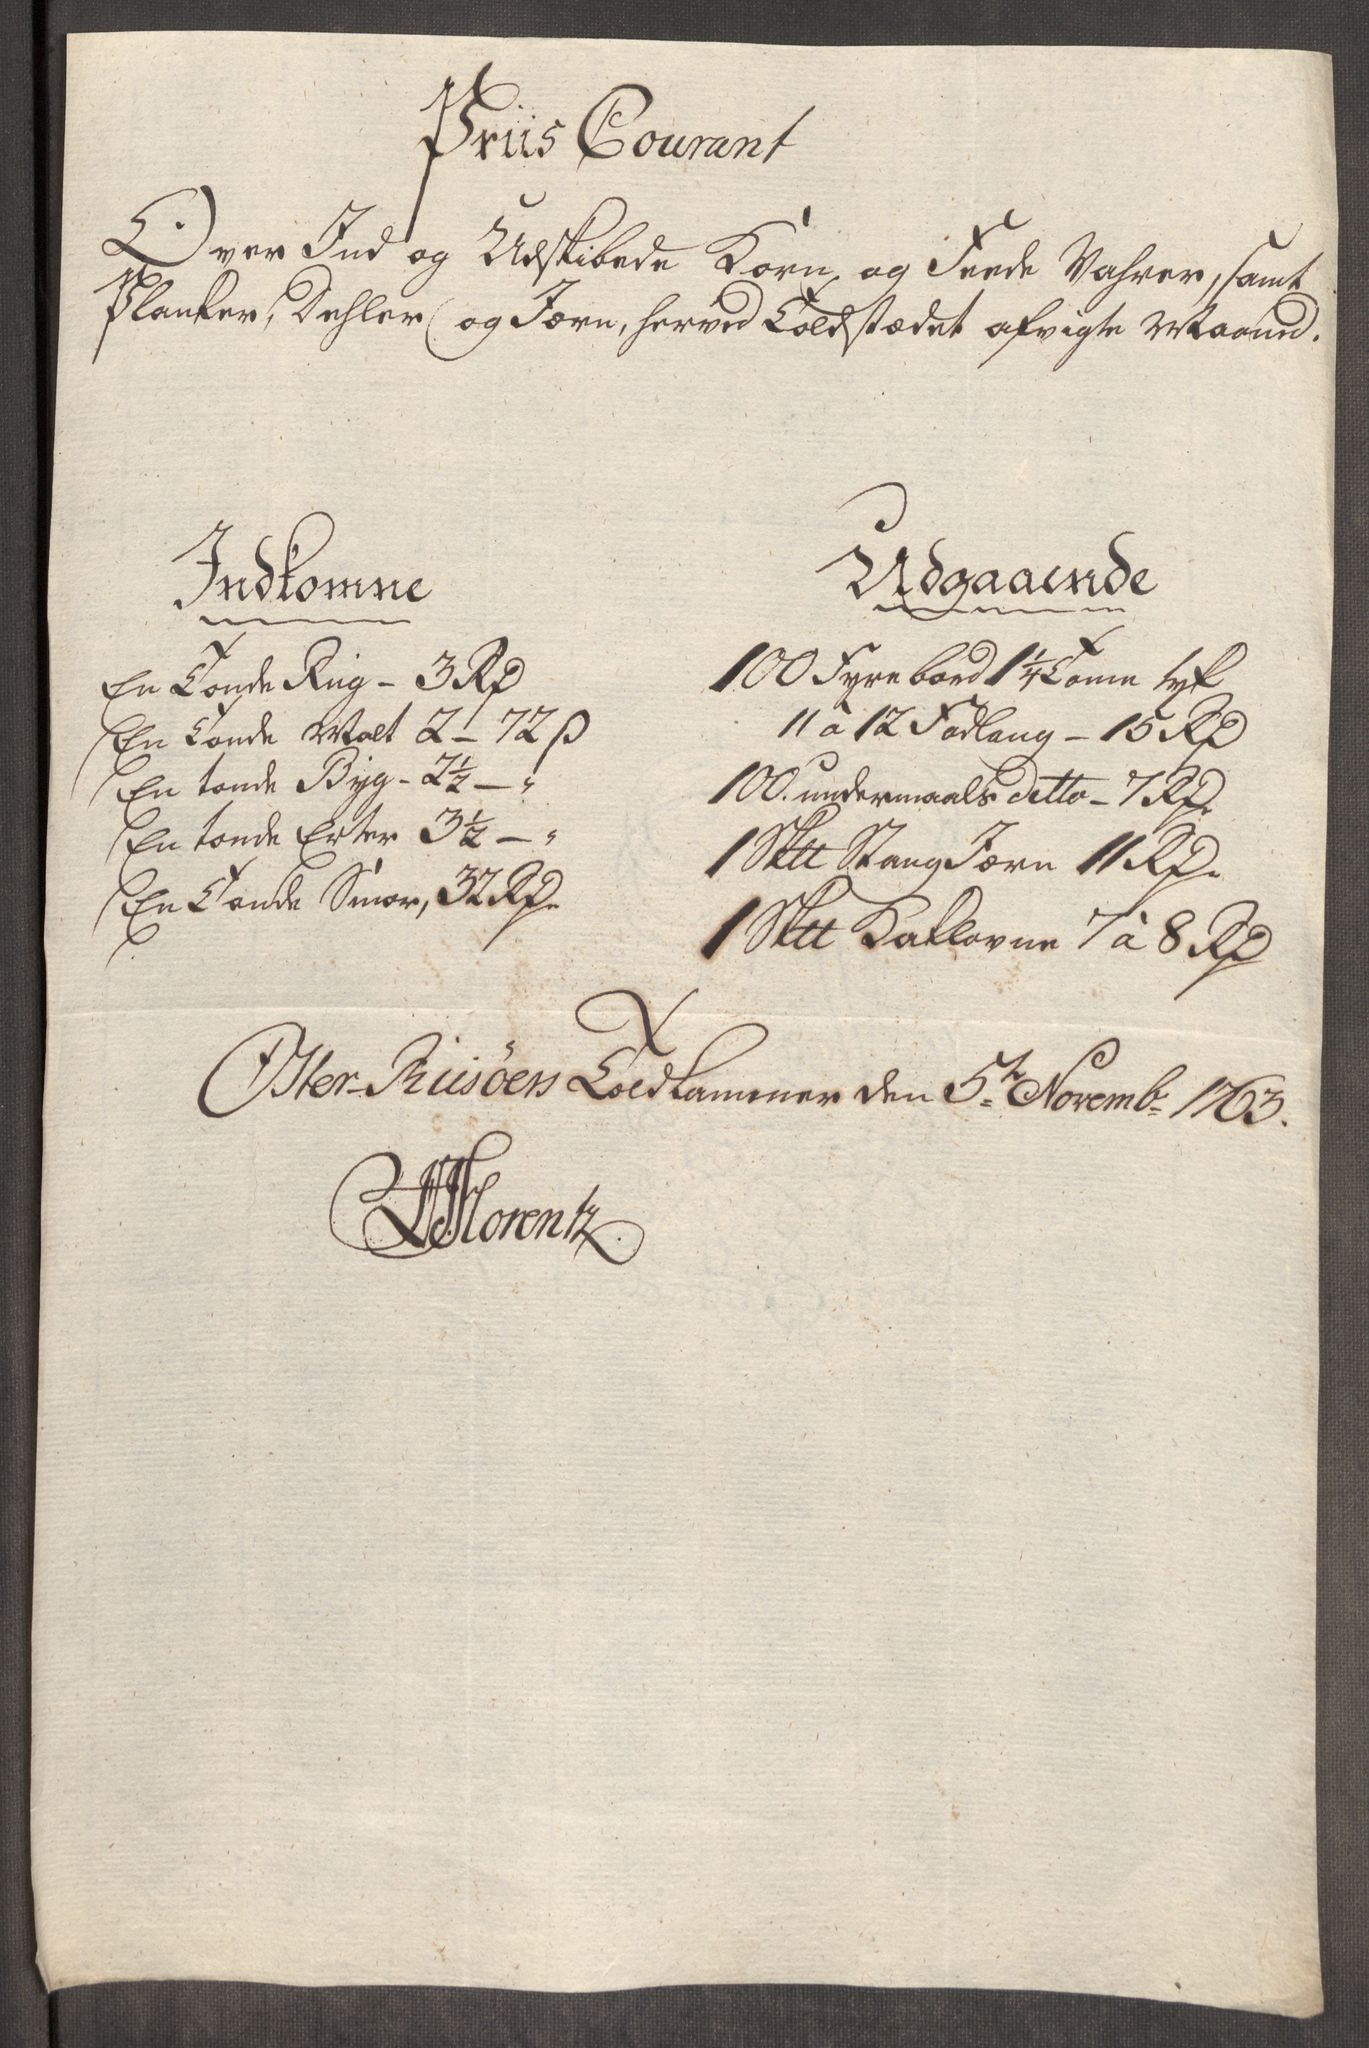 Priis Courant
Over Ind og Udskibede Korn og Feede Vahrer, samt
Planker, Dehler og Jærn, herved Toldstædet afvigte Maaned.
Indkomne
En Tonde Rug - 3 Rd
En Tonde Malt 2 - 72 ß
En tonde Byg - 2½ - "
En tonde Erter 3½ - "
En Tonde Smør, 32 Rd.
Udgaaende
100 Fyrebord 1¼ Tomme tyk
11 a 12 Fod lang - 15 Rd
100. undermaals detto - 7 Rd.
1 Sk℔ Stang Jærn 11 Rd.
1 Sk℔ Kaklovne 7 à 8 Rd
Øster-Riisöers Toldkammer den 5te Novemb: 1763.
Lorentz